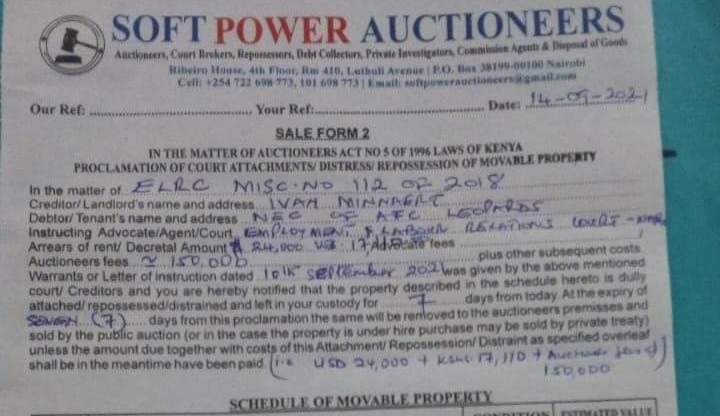 SOFT POWER AUCTIONEERS
Auctioneers, Court Brokers, Repossessors, Debt Collectors, Private Investigators, Commission Agents & Disposal of Goods
Ribeiro House, 4th Floor, Rm 410, Luthuli Avenue | P.O. Box 38199-00100 Nairobi
Cell: +254 722 698 773, 101 698 773 | Email: softpowerauctioneers@gmail.com
Our Ref: Your Ref: Date: 14-09-2021
SALE FORM 2
IN THE MATTER OF AUCTIONEERS ACT NO 5 OF 1996 LAWS OF KENYA
PROCLAMATION OF COURT ATTACHMENTS/ DISTRESS/ REPOSSESSION OF MOVABLE PROPERTY
In the matter of ELRC MISC. NO 112 OF 2018
Creditor/ Landlord's name and address IVAN MINNAERT
Debtor/ Tenant's name and address NEC OF AFC LEOPARDS
Instructing Advocate/Agent/Court EMPLOYMENT & LABOUR RELATIONS COURT -
Arrears of rent/ Decretal Amount 24,000 Advocate fees
Auctioneers fees 150,000 plus other subsequent costs.
Warrants or Letter of instruction dated 10th September 2021 was given by the above mentioned
court/ Creditors and you are hereby notified that the property described in the schedule hereto is dully
attached/ repossessed/distrained and left in your custody for 7 days from today. At the expiry of
SEVEN (7) days from this proclamation the same will be removed to the auctioneers premises and
sold by the public auction (or in the case the property is under hire purchase may be sold by private treaty)
unless the amount due together with costs of this Attachment/ Repossession/ Distraint as specified overleaf
shall be in the meantime have been paid. (i.e USD 24,000 + Kshs 17,110 + Auctioneer fees of
150,000
SCHEDULE OF MOVABLE PROPERTY
CONDITION ESTIMATED VALUE